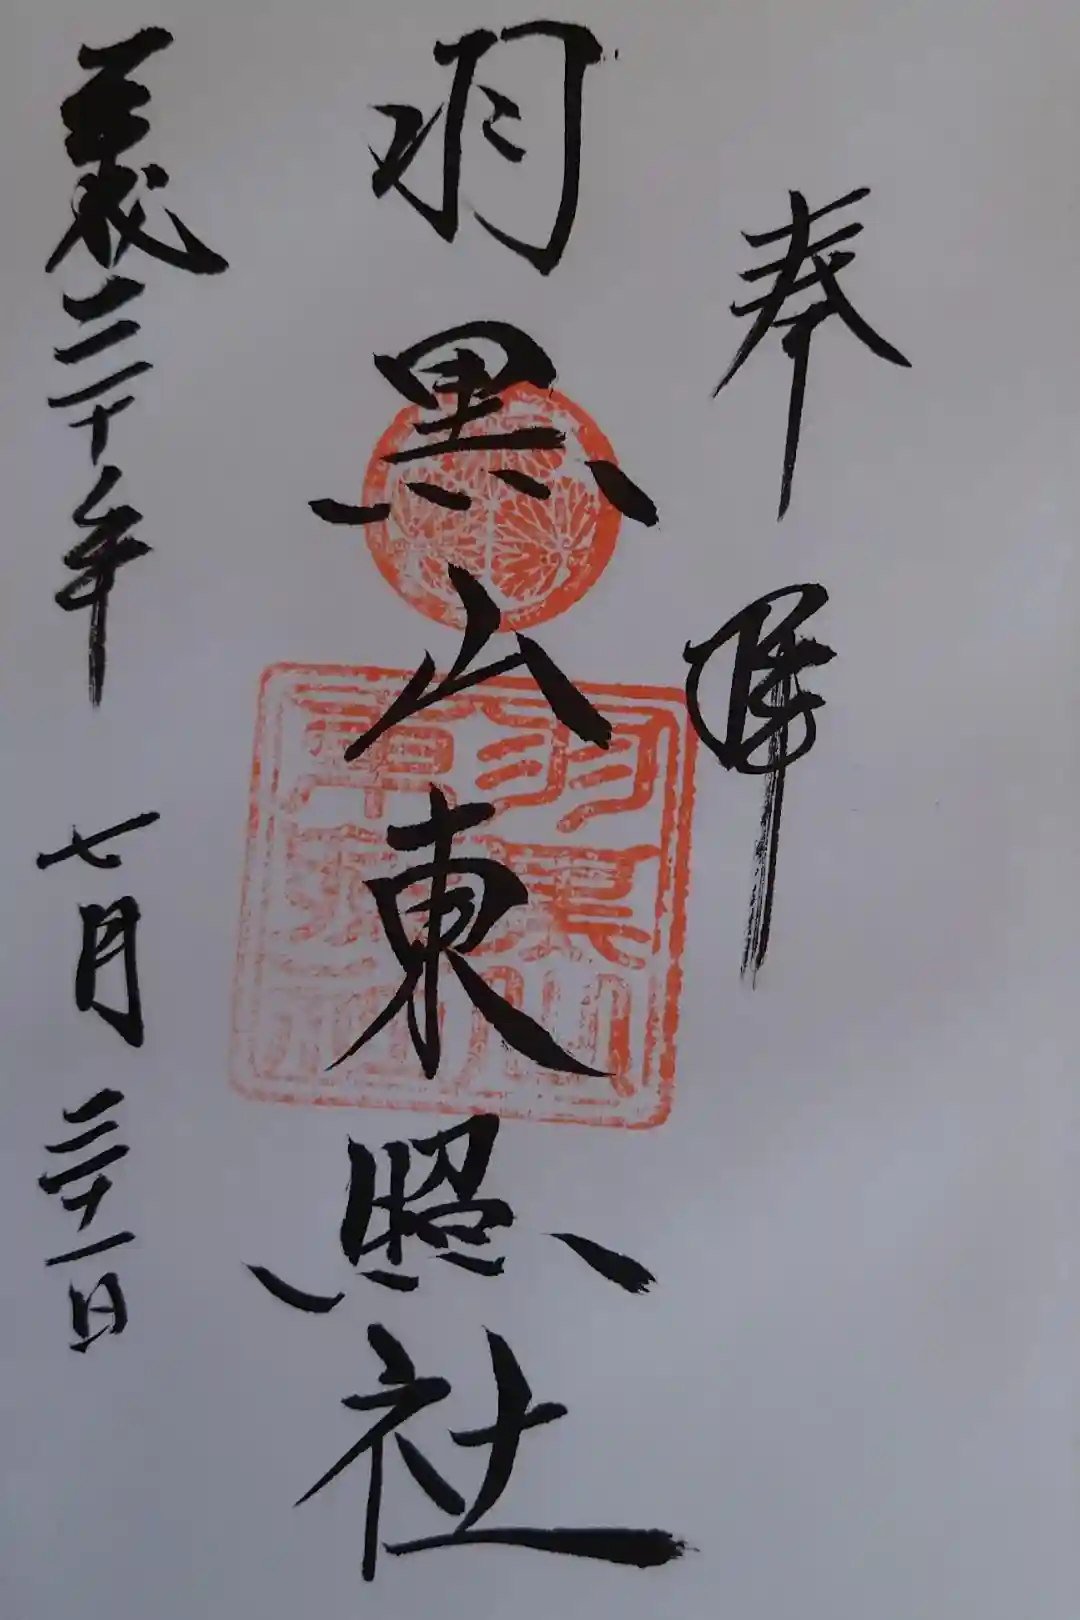 奉拝
羽黒山東照社
三十年 七月 三十一日
羽黒山
東照社